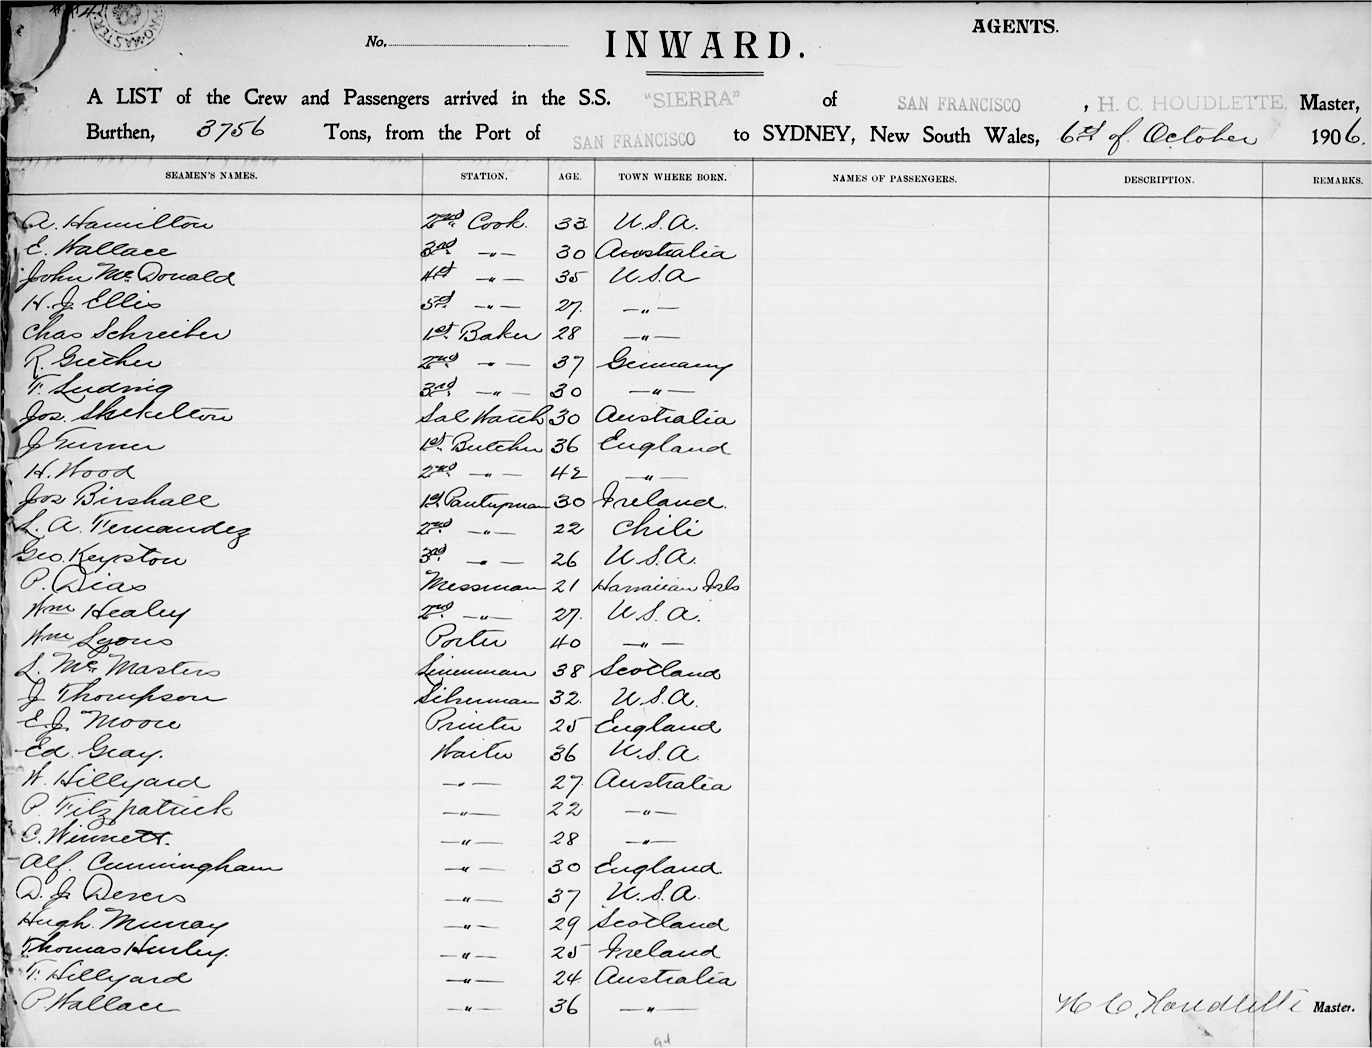 AGENTS.
No. INWARD.
A LIST of the Crew and Passengers arrived in the S.S. "SIERRA" of SAN FRANCISCO, H. C. HOUDLETTE, Master,
Burthen, 3756 Tons, from the Port of SAN FRANCISCO to SYDNEY, New South Wales, 6th of October 1906.
SEAMEN'S NAMES. STATION. AGE. TOWN WHERE BORN. NAMES OF PASSENGERS. DESCRIPTION. REMARKS.
A. Hamilton 2nd Cook. 33 U.S.A.
E. Wallace 3rd -"- 30 Australia
John McDonald 4th -"- 35 U.S.A
H. J Ellis 5th -"- 27. -"-
Chas Schreiber 1st. Baker 28 -"-
R. 2nd -"- 37 Germany
F. Ludwig 3rd -"- 30 -"-
Jos. Skekelton 30 Australia
J Turner 1st. Butcher 36 England
H. Wood 2nd -"- 42 -"-
Jos Birshall 1st Pantryman 30 Ireland.
L. A. Fernandez 2nd -"- 22 Chili
Geo. Keyston 3rd -"- 26 U.S.A.
P. Dias Messman 21 Hawaiian Isls
Wm Healey 2nd -"- 27. U.S.A.
Wm Lyons Porter 40 -"-
L. McMasters Linenman 38 Scotland
J Thompson Silverman 32. U.S.A.
E.J. Moore Printer 25 England
Ed. Gray. Waiter 36 U.S.A.
W. Hillyard -"- 27 Australia
P. Fitzpatrick -"- 22 -"-
C. Winnett. -"- 28 -"-
Alf. Cunningham -"- 30 England
D. J. Devers -"- 37 U.S.A.
Hugh Murray -"- 29 Scotland
Thomas Hurley. -"- 25 Ireland
F. Hillyard -"- 24 Australia
P Wallace -"- 36 -"- H C. Houdlette Master.